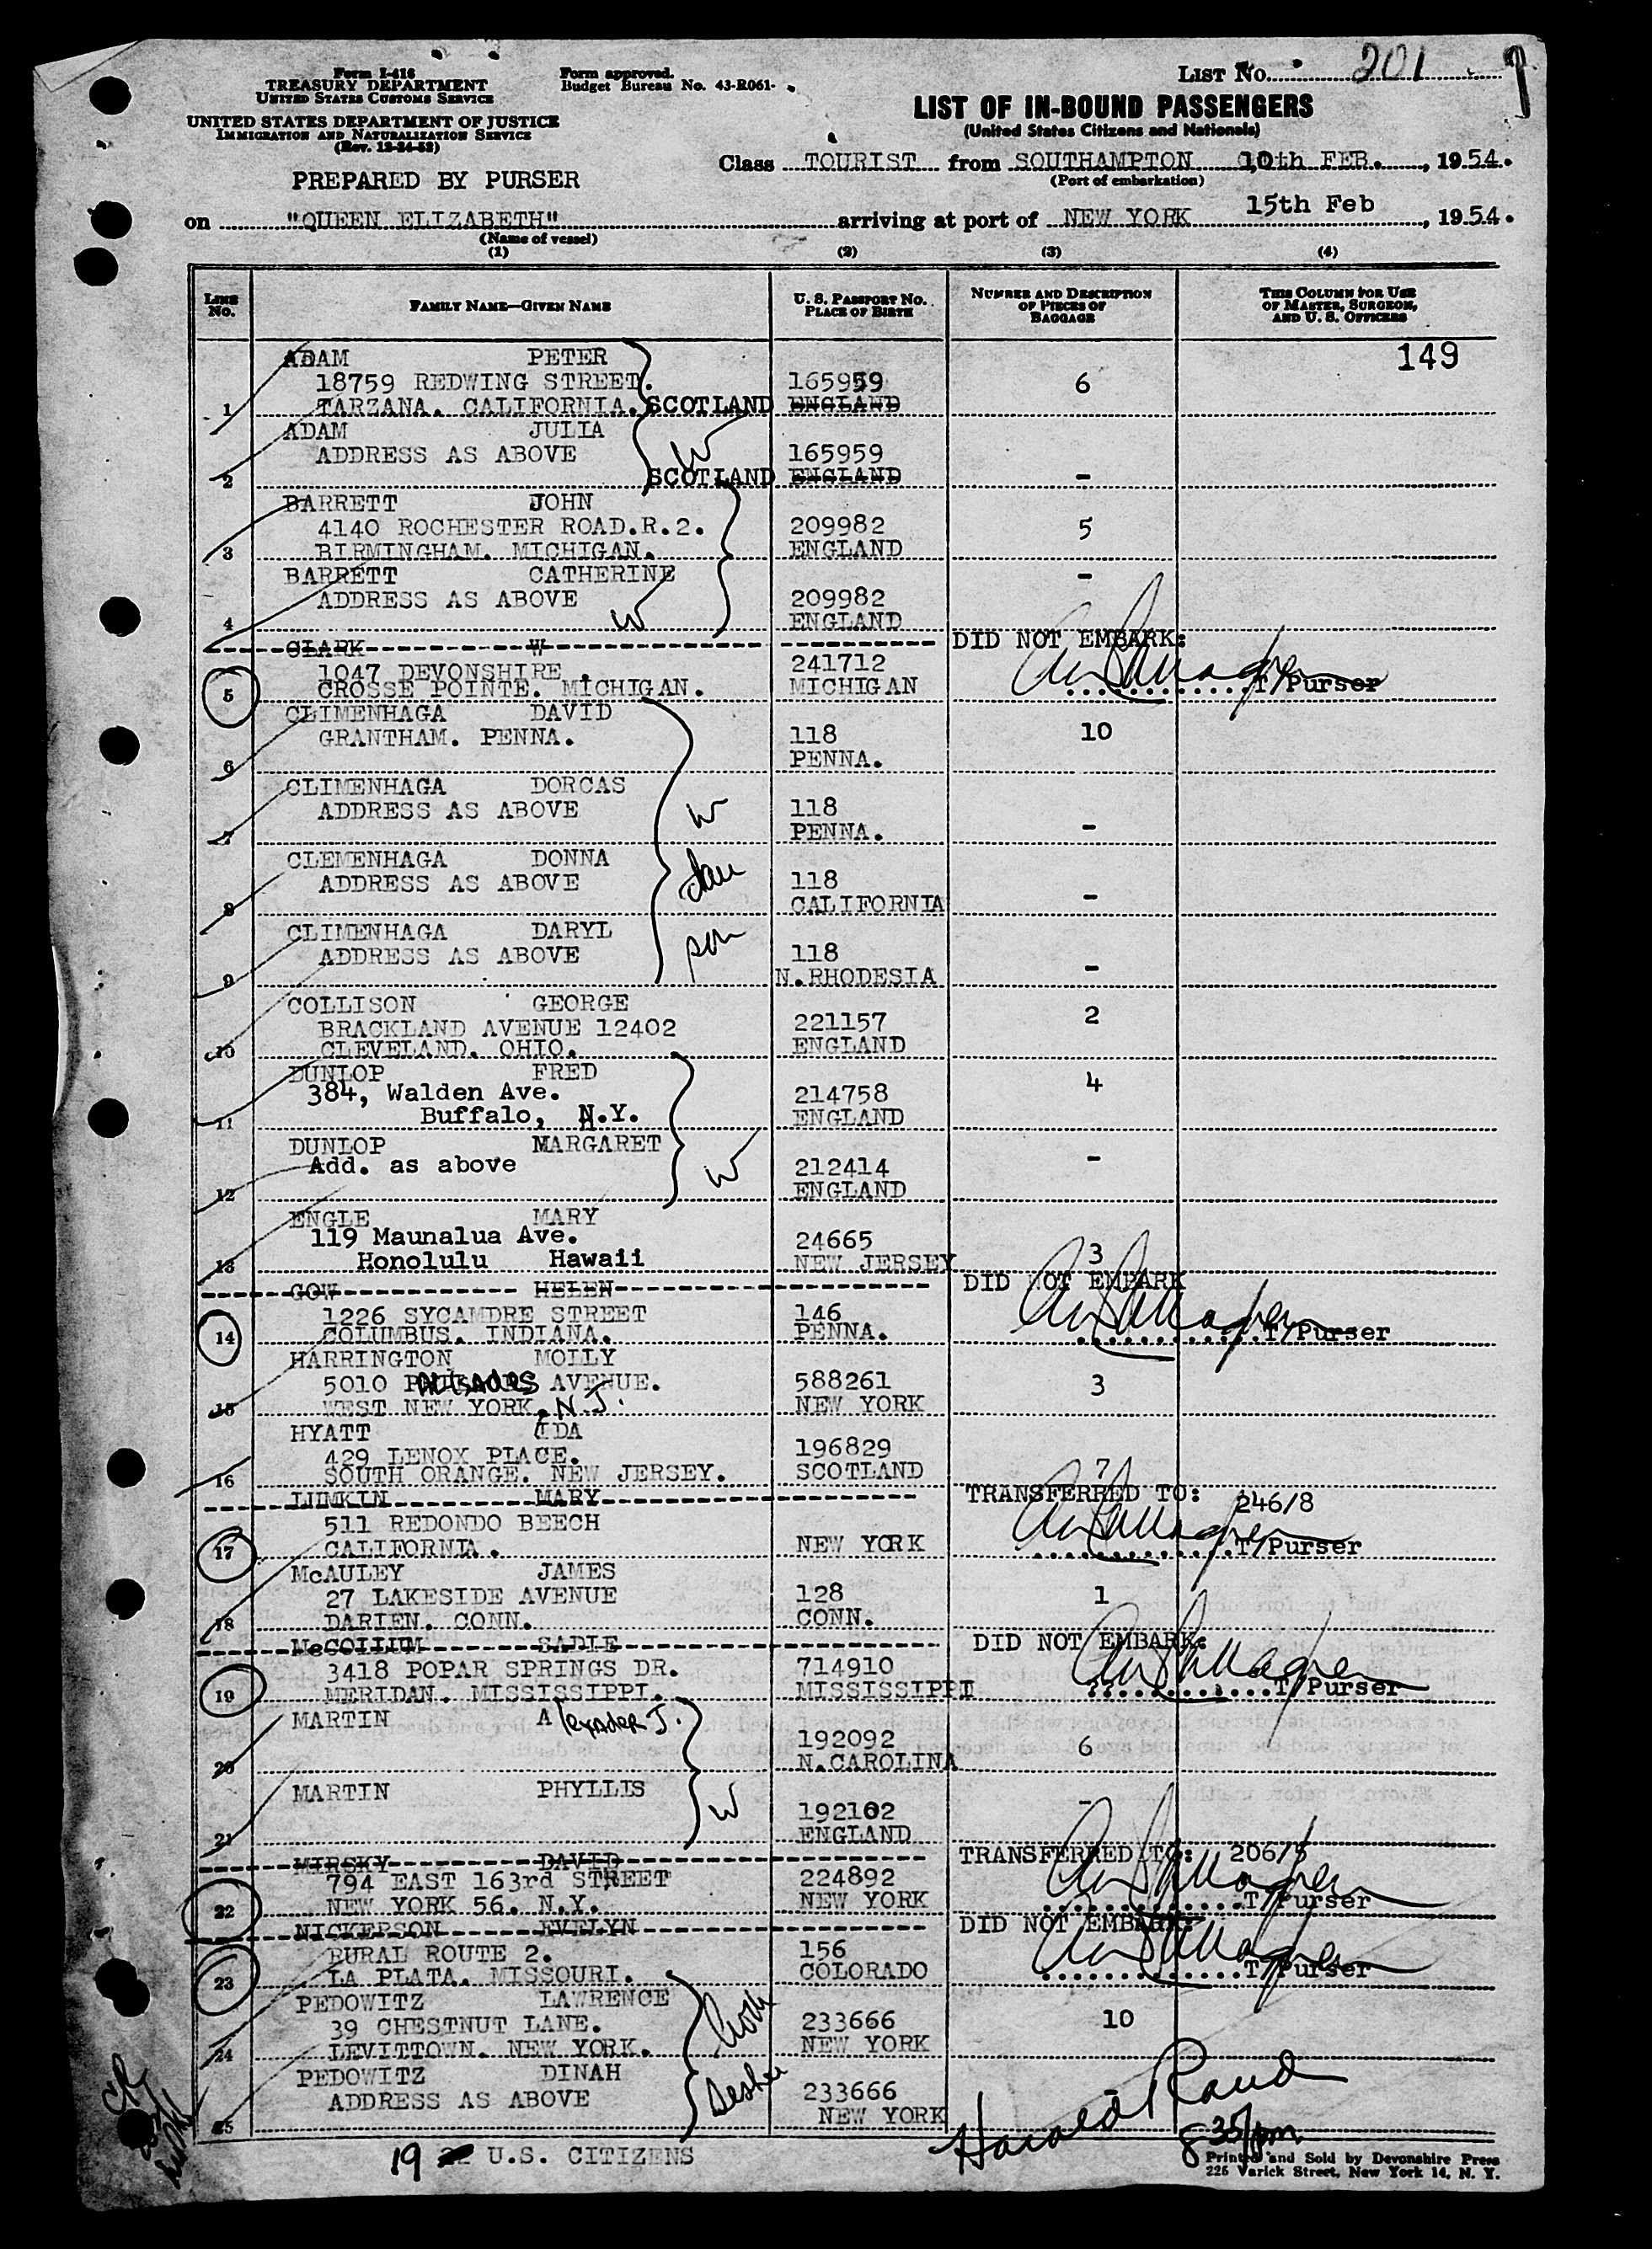 Form I-416
TREASURY DEPARTMENT
UNITED STATES CUSTOMS SERVICE
UNITED STATES DEPARTMENT OF JUSTICE
IMMIGRATION AND NATURALIZATION SERVICE
(Rev. 12-24-52)
Form approved.
Budget Bureau No. 43-R061-
LIST No. 201
LIST OF IN-BOUND PASSENGERS
(United States Citizens and Nationals)
PREPARED BY PURSER
Class TOURIST from SOUTHAMPTON 10th FEB., 1954.
(Port of embarkation)
on "QUEEN ELIZABETH" arriving at port of NEW YORK 15th Feb, 1954.
(Name of vessel)
(1) (2) (3) (4)
LINE No. FAMILY NAME—GIVEN NAME U. S. PASSPORT No. PLACE OF BIRTH NUMBER AND DESCRIPTION OF PIECES OF BAGGAGE THIS COLUMN FOR USE OF MASTER, SURGEON, AND U. S. OFFICERS
149
ADAM PETER
18759 REDWING STREET. 165959 6
1 TARZANA. CALIFORNIA. SCOTLAND ENGLAND
ADAM JULIA
ADDRESS AS ABOVE W 165959
2 SCOTLAND ENGLAND -
BARRETT JOHN
4140 ROCHESTER ROAD.R.2. 209982 5
3 BIRMINGHAM. MICHIGAN. ENGLAND
BARRETT CATHERINE -
ADDRESS AS ABOVE W 209982
4 ENGLAND
CLARK W DID NOT EMBARK:
1047 DEVONSHIRE . 241712
5 CROSSE POINTE. MICHIGAN. MICHIGAN T/Purser
CLIMENHAGA DAVID
GRANTHAM. PENNA. 118 10
6 PENNA.
CLIMENHAGA DORCAS
ADDRESS AS ABOVE W 118
7 PENNA. -
CLEMENHAGA DONNA
ADDRESS AS ABOVE dau 118
8 CALIFORNIA -
CLIMENHAGA DARYL
ADDRESS AS ABOVE son 118
9 N.RHODESIA -
COLLISON GEORGE
BRACKLAND AVENUE 12402 221157 2
10 CLEVELAND. OHIO. ENGLAND
DUNLOP FRED
384, Walden Ave. 214758 4
11 Buffalo, N.Y. ENGLAND
DUNLOP MARGARET
Add. as above W 212414 -
12 ENGLAND
ENGLE MARY
119 Maunalua Ave. 24665
13 Honolulu Hawaii NEW JERSEY 3
GOW HELEN DID NOT EMBARK
1226 SYCAMDRE STREET 146
14 COLUMBUS. INDIANA. PENNA. T/Purser
HARRINGTON MOLLY
5010 PALISADES AVENUE. 588261 3
15 WEST NEW YORK. N.J. NEW YORK
HYATT IDA
429 LENOX PLACE. 196829
16 SOUTH ORANGE. NEW JERSEY. SCOTLAND 7
LUMKIN MARY TRANSFERRED TO: 246/8
511 REDONDO BEECH
17 CALIFORNIA. NEW YORK T/Purser
McAULEY JAMES
27 LAKESIDE AVENUE 128 1
18 DARIEN. CONN. CONN.
McCOLLUM SADIE DID NOT EMBARK:
3418 POPAR SPRINGS DR. 714910
19 MERIDAN. MISSISSIPPI. MISSISSIPPI T/Purser
MARTIN Alexander J.
192092 6
20 N.CAROLINA
MARTIN PHYLLIS
W 192102 -
21 ENGLAND
MIRSKY DAVID TRANSFERRED TO: 206/5
794 EAST 163rd STREET 224892
22 NEW YORK 56. N.Y. NEW YORK T/Purser
NICKERSON EVELYN DID NOT EMBARK:
RURAL ROUTE 2. 156
23 LA PLATA. MISSOURI. COLORADO T/Purser
PEDOWITZ LAWRENCE
39 CHESTNUT LANE. 233666 10
24 LEVITTOWN. NEW YORK. NEW YORK
PEDOWITZ DINAH
ADDRESS AS ABOVE 233666 -
25 NEW YORK
Harold Rand
835/pm
19 U.S. CITIZENS
Printed and Sold by Devonshire Press
225 Varick Street, New York 14, N. Y.